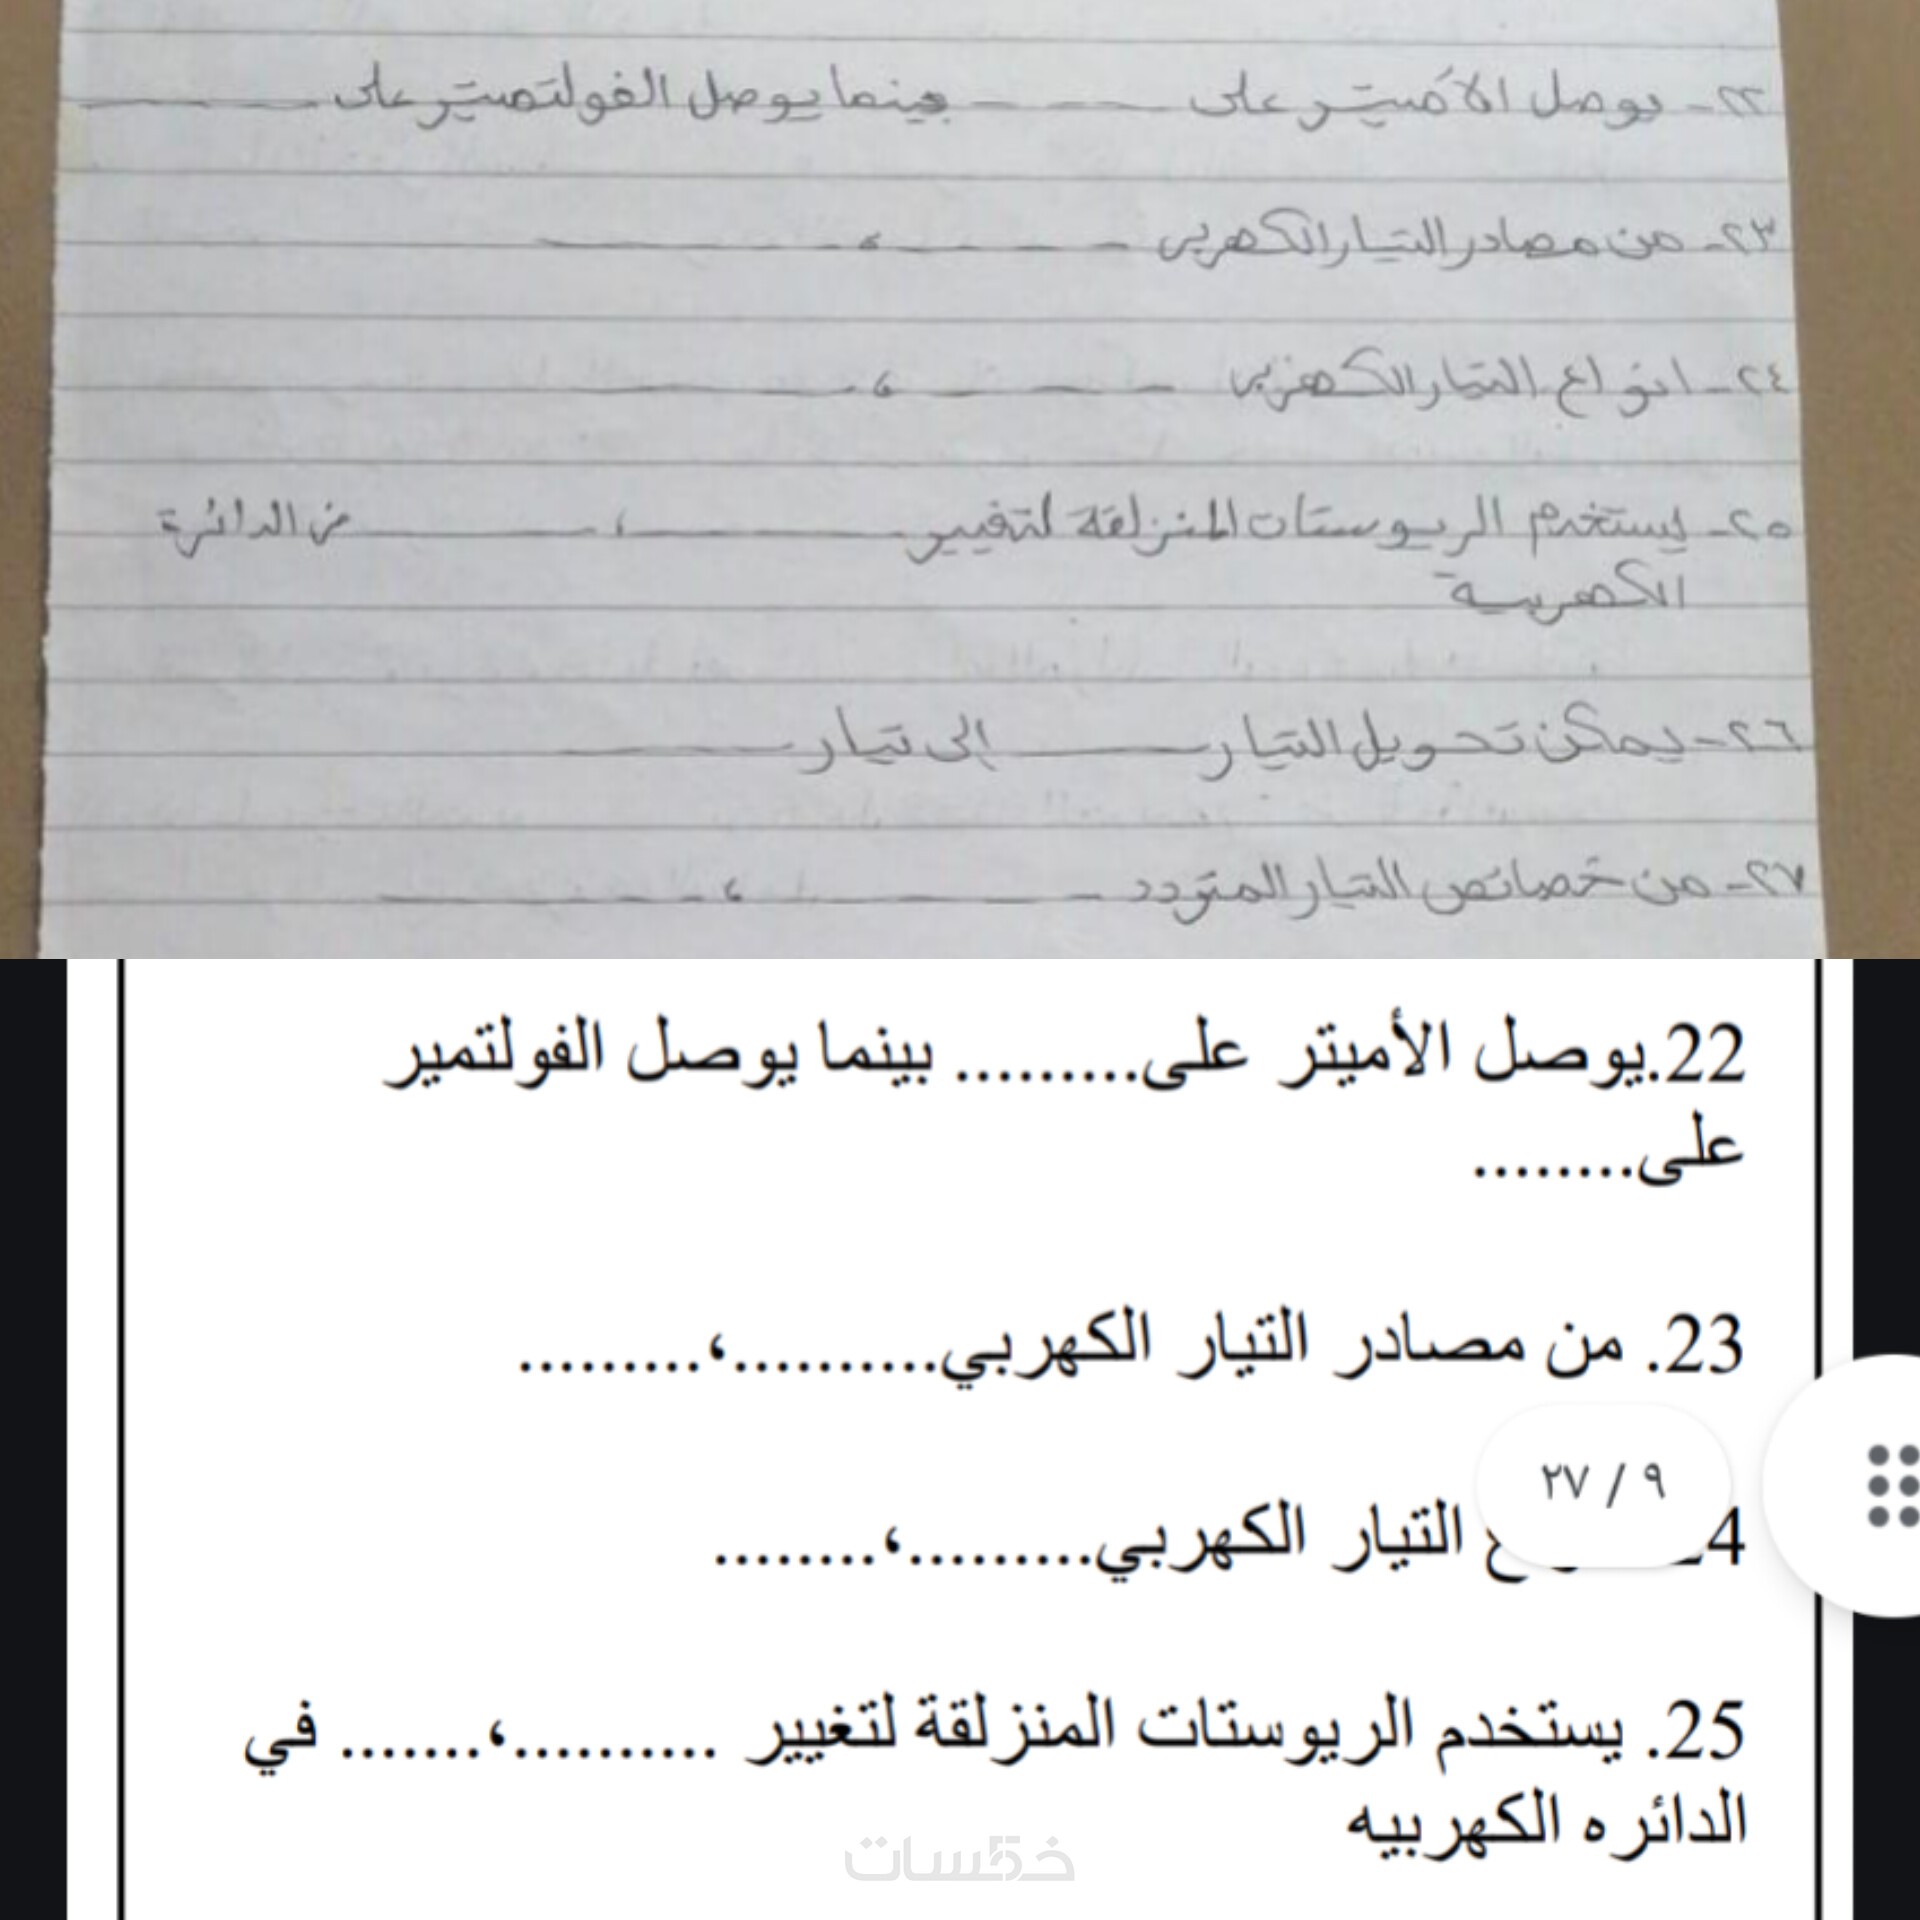 ٢٢- يوصل الأميتر على ــــــ بينما يوصل الفولتميتر على ــــــ
٢٣- من مصادر التيار الكهربى ــــــ ، ــــــ
٢٤- انواع التيار الكهربى ــــــ ، ــــــ
٢٥- يستخدم الريوستات المنزلقة لتغيير ــــــ ، ــــــ فى الدائرة
الكهربية
٢٦- يمكن تحويل التيار ــــــ إلى تيار ــــــ
٢٧- من خصائص التيار المتردد ــــــ ، ــــــ
22.يوصل الأميتر على......... بينما يوصل الفولتمير
على........
23. من مصادر التيار الكهربي..........،.........
التيار الكهربي.........،........
٩ / ٢٧
25. يستخدم الريوستات المنزلقة لتغيير ..........،....... في
الدائره الكهربيه
خمسات